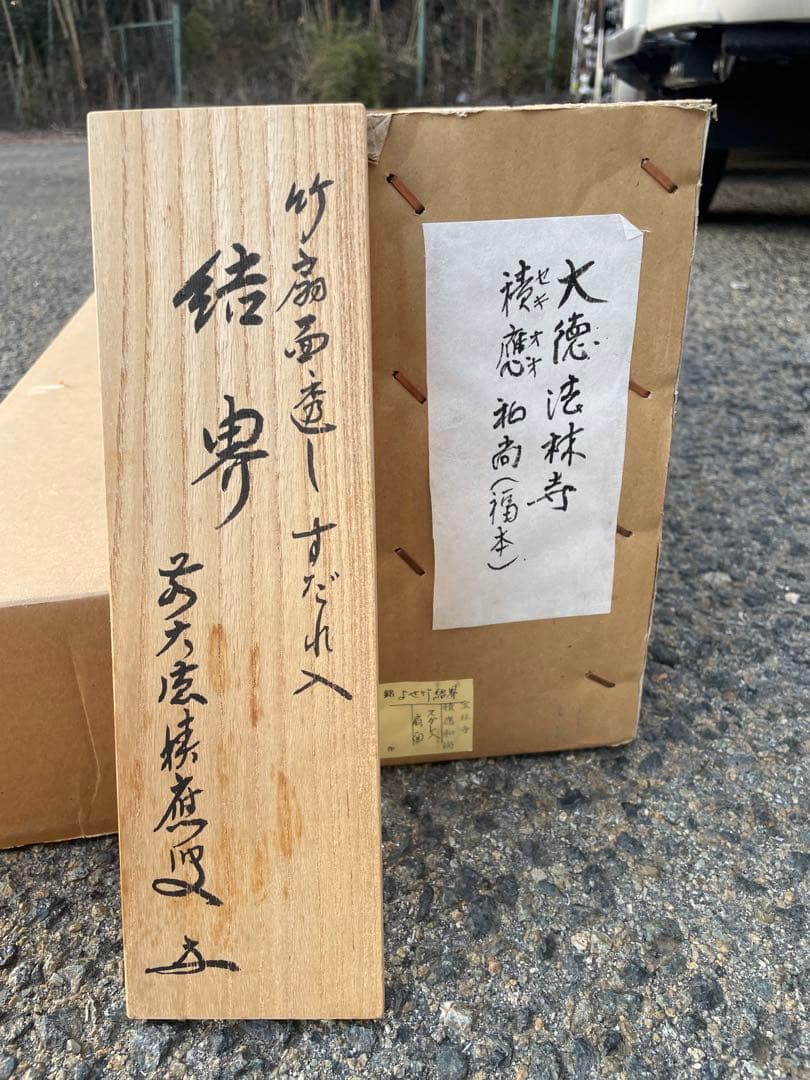 竹扇面透しすだれ入
結界
前大徳積應叟
大徳法林寺
積應和尚(福本)
セキオオ
銘よせ竹結界
積應和尚
スダレ入
扇面
作